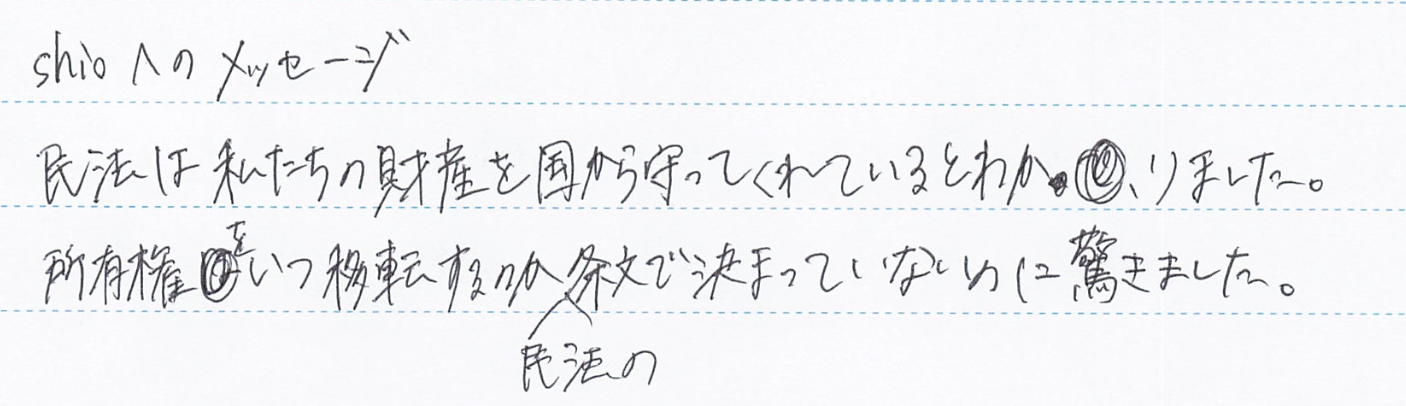 shioへのメッセージ
民法は私たちの財産を国から守ってくれているとわかりました。
所有権をいつ移転するのか民法の条文で決まっていないのに驚きました。